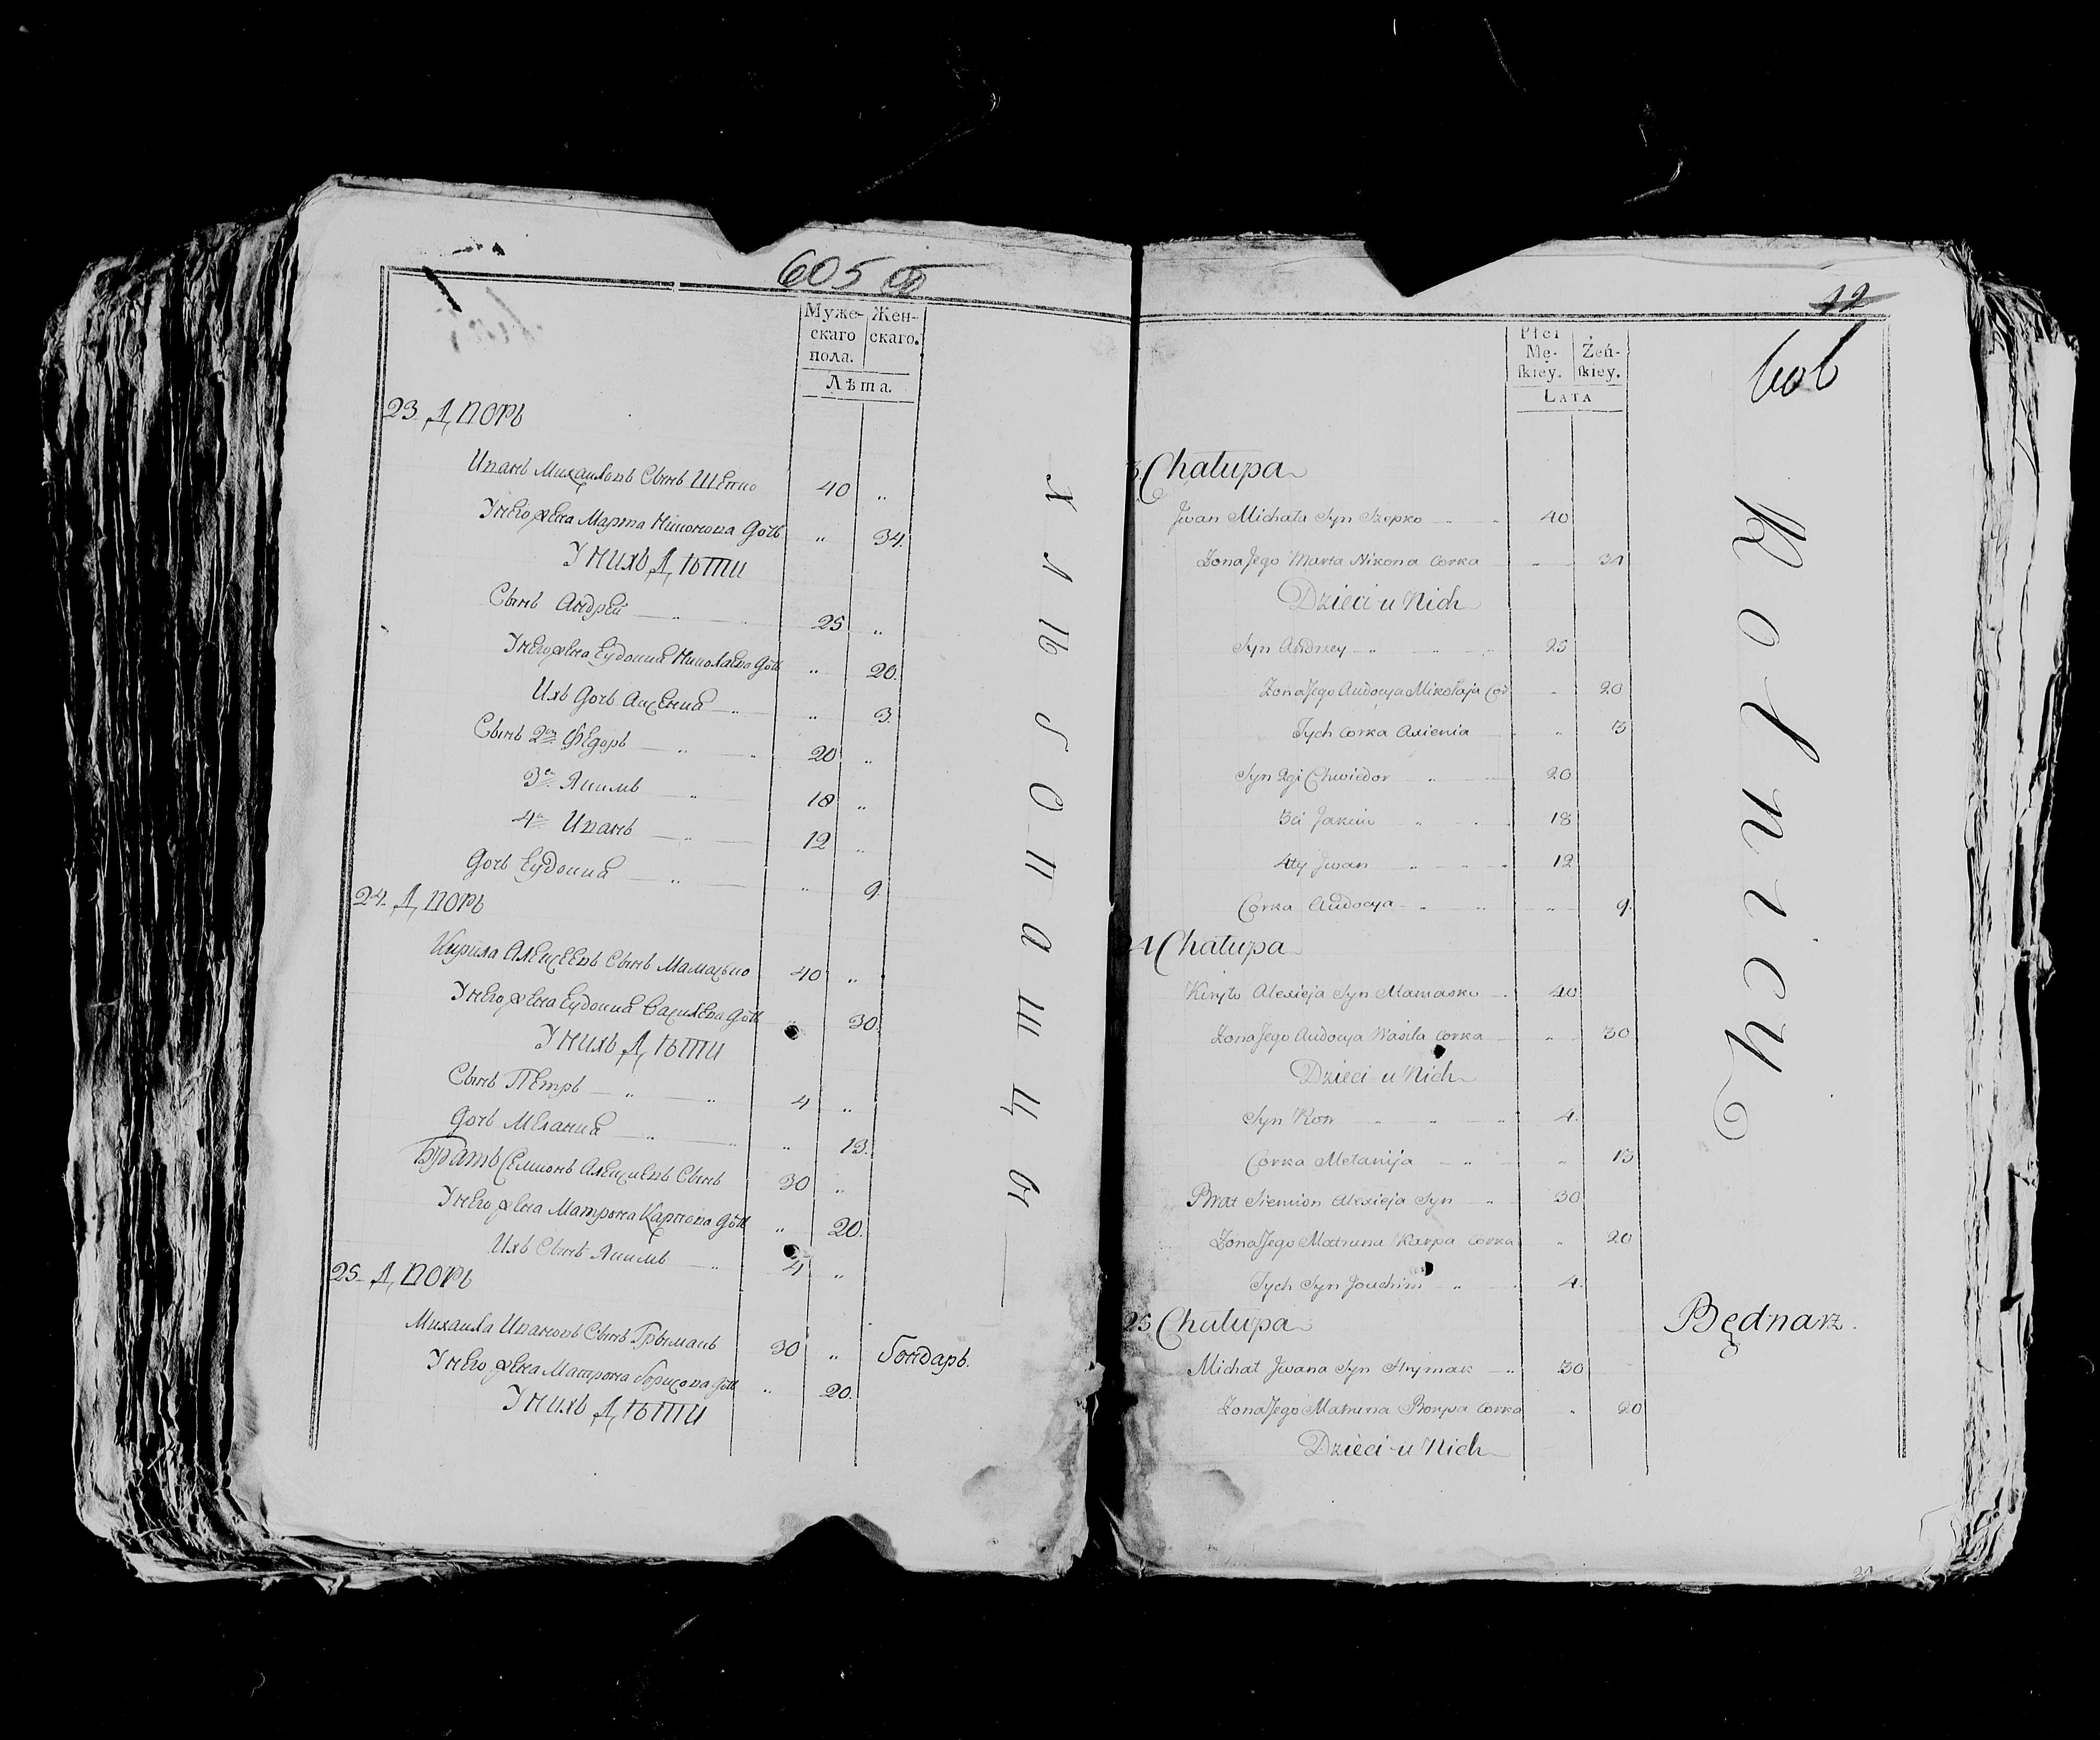 605 об
Муже-
скаго
пола.
Жен-
скаго.
Лѣта.
23. Дворъ
Иванъ Михайловъ Сынъ Шепко 40 „
У него жена Марта Никонова дочь „ 34.
У нихъ Дѣти
Сынъ Андрей 25 „
У него жена Еудокия Николаева дочь „ 20.
Ихъ дочь Аксения „ 3.
Сынъ 2й Федоръ 20 „
3й Якимъ 18 „
4й Иванъ 12 „
дочь Еудокия „ 9.
24. Дворъ
Кирила Алексеевъ Сынъ Мамасько 40 „
У него жена Еудокия Василева дочь „ 30.
У нихъ Дѣти
Сынъ Петръ 4 „
дочь Мелания „ 13.
Братъ Семионъ Алексиевъ Сынъ 30 „
У него жена Матрона Карпова дочь „ 20.
Ихъ Сынъ Якимъ 4 „
25. Дворъ
Михаила Ивановъ Сынъ 30 „ бондаръ.
У него жена Матрона Борисова дочь „ 20.
У нихъ Дѣти
42
606
Płci
Mę-
ſkiey.
Żeń-
ſkiey.
Lata
Chałupa
Jwan Michała Syn Szepko 40
Żona Jego Marta Nikona Corka „ 34
Dzieci u Nich
Syn Andrzey 25
Żona Jego Audocya Mikołaja Cor „ 20
Tych Corka Axienia „ 3
Syn 2gi Chwiedor 20
3ci Jakim 18
4ty Jwan 12
Corka Audocya „ 9.
4 Chałupa
Kiryło Alexieja Syn Mamasko 40
Żona Jego Audocya Wasila Corka „ 30
Dzieci u Nich
Syn Piotr 4.
Corka Mełanija „ 13
Brat Siemion Alexieja Syn 30
Żona Jego Matruna Karpa Corka „ 20
Tych Syn Jouchim 4.
25 Chałupa Będnarz.
Michał Jwana Syn 30
Żona Jego Matruna Corka „ 20
Dzieci u Nich
Rolnicy